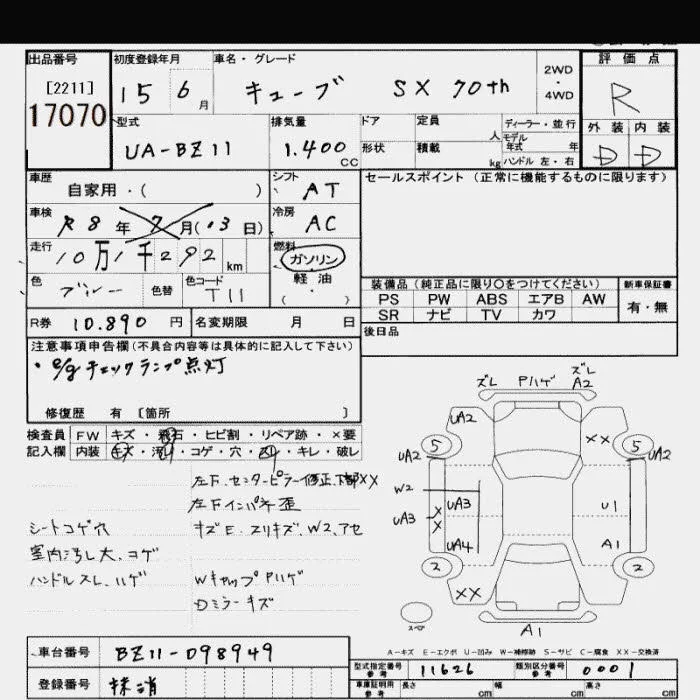 出品番号 初度登録年月 車名・グレード 評価点
[2211] 15 6月 キューブ SX 70th 2WD・4WD R
17070 型式 排気量 ドア 定員 人 ディーラー・並行 外装 内装
UA-BZ11 1.400 CC 形状 積載 kg モデル年式 年 ハンドル 左・右 D D
車歴 自家用・( ) シフト AT セールスポイント(正常に機能するものに限ります)
車検 R8年7月(13日) 冷房 AC
走行 10万1千292km 燃料 ガソリン
色 ブルー 色替 色コード T11 軽油 ( ・ )
装備品(純正品に限り○をつけてください) 新車保証書
PS PW ABS エアB AW 有・無
SR ナビ TV カワ
R券 10.890円 名変期限 月 日 後日品
注意事項申告欄(不具合内容等は具体的に記入して下さい)
・e/gチェックランプ点灯
修復歴 有 [箇所 ]
検査員 FW キズ・飛石・ヒビ割・リペア跡・×要
記入欄 内装 キズ・汚れ・コゲ・穴・スレ・キレ・破レ
左F.センターピラー修正、下部XX
左Fインパネ歪
シートコゲ穴 キズE、スリキズ、W2、アセ
室内汚し大、コゲ
ハンドルスレ、ハゲ WキャップPハゲ
Dミラーキズ
ズレ Pハゲ ズレ A2
UA2 XX
5 5
UA2 UA2
W2
UA3 X UA3 U1
X
UA4 A1
2 2
XX
スペア A1
A-キズ E-エクボ U-凹み W-補修跡 S-サビ C-腐食 XX-交換済
車台番号 BZ11-098949 型式指定番号 参考 11626 類別区分番号 参考 0001
登録番号 抹消 車庫証明用 参考 長さ cm 幅 cm 高さ cm